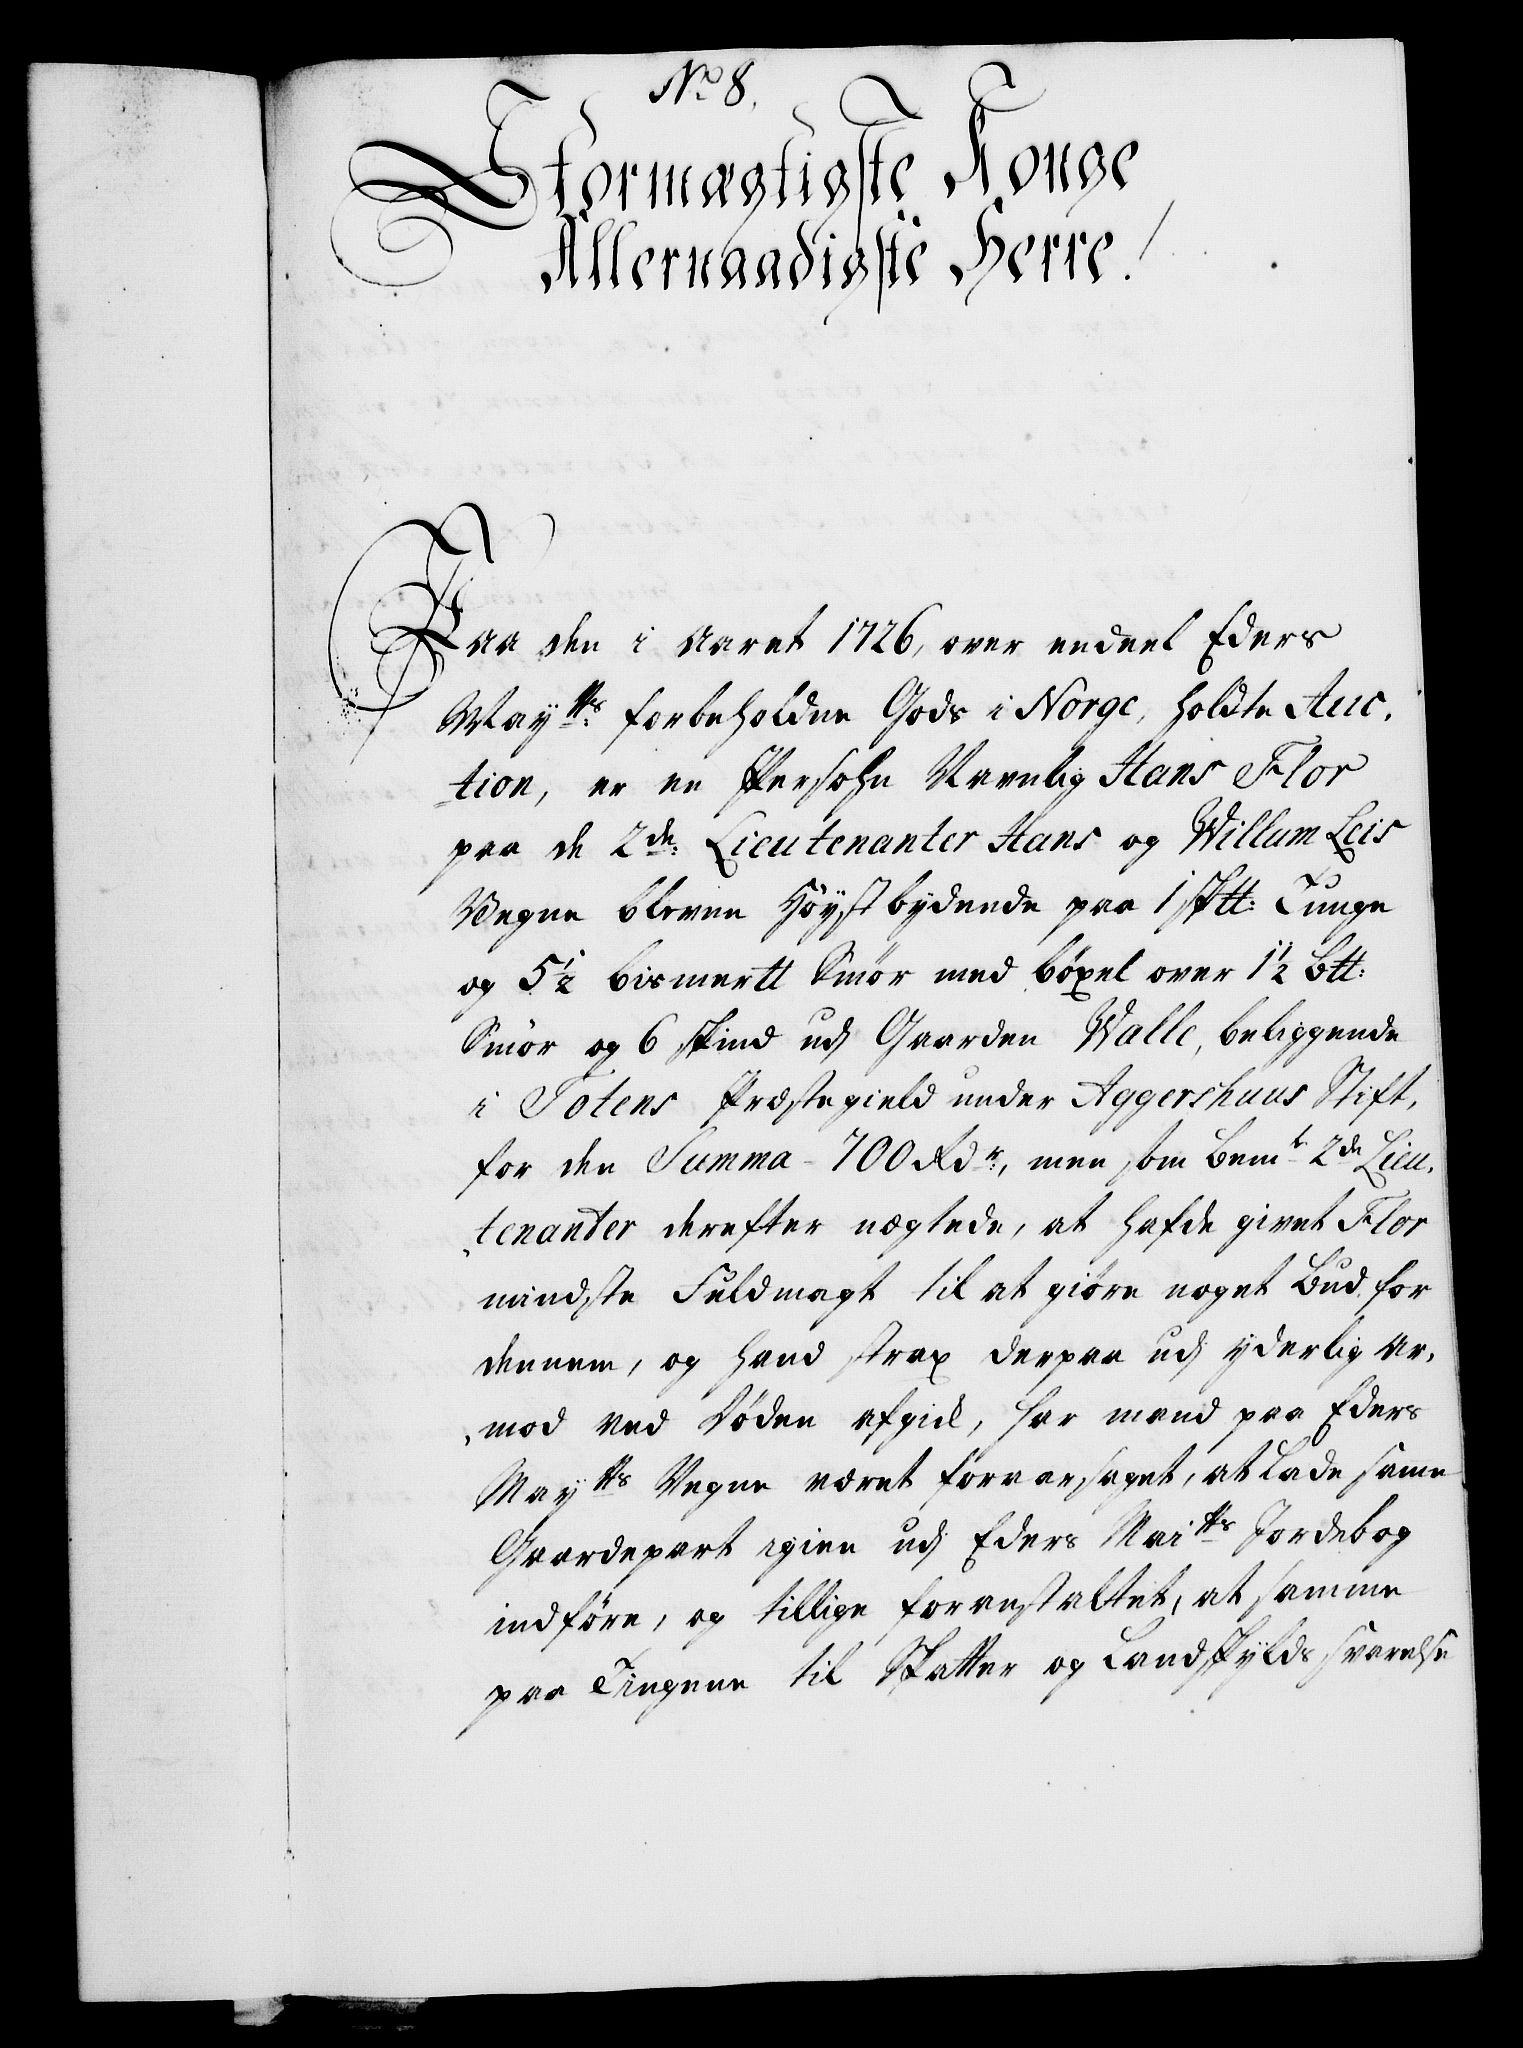 No 8.
Stormægtigste Konge
Allernaadigste Herre!
Paa den i Aaret 1726, over endeel Eders
Mayts forbeholdne Gods i Norge, holdte Auc,
tion, er en Persohn Navnlig Hans Flor
paa de 2de: Lieutenanter Hans og Willum Leis
Vegne bleven Höystbydende paa 1 sktt: Tunge
og 5½ bismertt Smör med böxel over 1½ btt:
Smör og 6 skind udj Gaarden Walle, beliggende
i Totens Præstegield under Aggershuus Stift,
for den Summa - 700 Rdr:, men som bemte 2de Lieu,
tenanter derefter nægtede, at hafde givet Flor
mindste Fuldmagt til at giöre noget Bud for
dennem, og hand strax derpaa udj yderlig Ar,
mod ved Döden afgick, har mand paa Eders
Mayts Vegne været foraarsaget, at lade same
Gaardepart igien udj Eders Maits Jordebog
indföre, og tillige foranstaltet, at samme
paa Tingene til Skatter og Landskylds svarelse